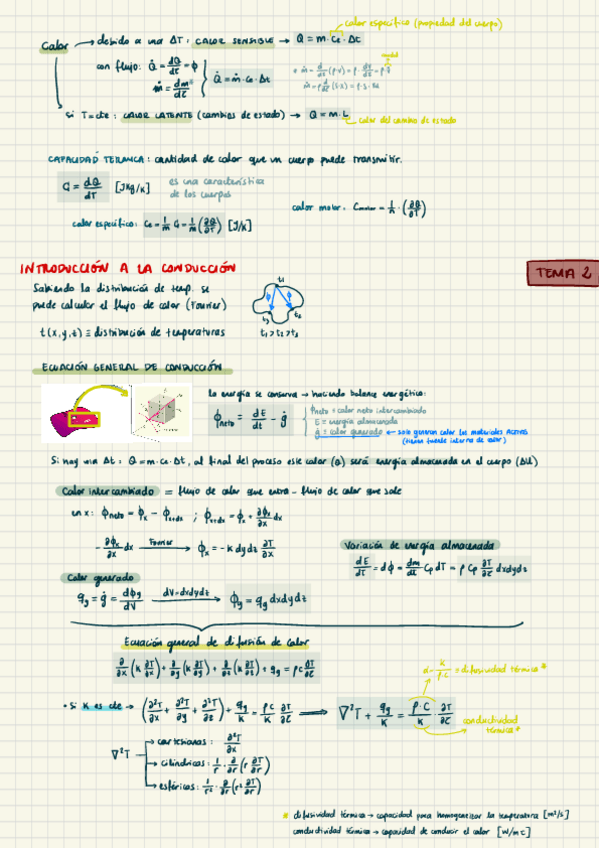 calor específico (propiedad del cuerpo)
Calor → debido a una ΔT : CALOR SENSIBLE → Q = m·Ce·Δt
con flujo: Q̇ = dQ/dτ = ϕ
ṁ = dm/dτ
Q̇ = ṁ·Ce·Δt
si T=cte : CALOR LATENTE (cambios de estado) → Q = m·L
calor del cambio de estado
CAPACIDAD TÉRMICA : cantidad de calor que un cuerpo puede transmitir.
C = dQ/dT [J kg/K] es una característica
de los cuerpos
calor molar: Cmolar = 1/n · (∂Q/∂T)
calor específico: Ce = 1/m C = 1/m (∂Q/∂T) [J/K]
INTRODUCCIÓN A LA CONDUCCIÓN
TEMA 2
Sabiendo la distribución de temp. se
puede calcular el flujo de calor (Fourier)
t(x,y,z) ≡ distribución de temperaturas
t₁
t₃ t₂
t₁ > t₂ > t₃
ECUACIÓN GENERAL DE CONDUCCIÓN
la energía se conserva → haciendo balance energético:
ϕneto = dE/dt - ġ
ϕneto = calor neto intercambiado
E = energía almacenada
ġ = calor generado ← solo generan calor los materiales activos
(tienen fuente interna de calor)
Si hay una Δt : Q = m·ce·Δt, al final del proceso este calor (Q) será energía almacenada en el cuerpo (ΔU)
Calor intercambiado = flujo de calor que entra - flujo de calor que sale
en x: ϕneto = ϕx - ϕx+dx ; ϕx+dx = ϕx + ∂ϕx/∂x dx
- ∂ϕx/∂x dx Fourier → ϕx = -k dydz ∂T/∂x
Variación de energía almacenada
dE/dτ = dϕ = dm/dτ · Cp dT = ρ Cp ∂T/∂τ dxdydz
Calor generado
qg = ġ = dϕg/dV dV=dxdydz → ϕg = qg dxdydz
Ecuación general de difusión de calor
∂/∂x (k ∂T/∂x) + ∂/∂y (k ∂T/∂y) + ∂/∂z (k ∂T/∂z) + qg = ρc ∂T/∂τ
α = k/ρ·c = difusividad térmica *
• Si K es cte → (∂²T/∂x + ∂²T/∂y + ∂²T/∂z) + qg/K = ρc/K ∂T/∂τ ⟹ ∇²T + qg/K = ρ·C/K · ∂T/∂τ
conductividad
térmica *
∇²T → cartesianas : ∂²T/∂x
→ cilíndricas : 1/r · ∂/∂r (r ∂T/∂r)
→ esféricas : 1/r² · ∂/∂r (r² ∂T/∂r)
* difusividad térmica → capacidad para homogeneizar la temperatura [m²/s]
conductividad térmica → capacidad de conducir el calor [W/m℃]